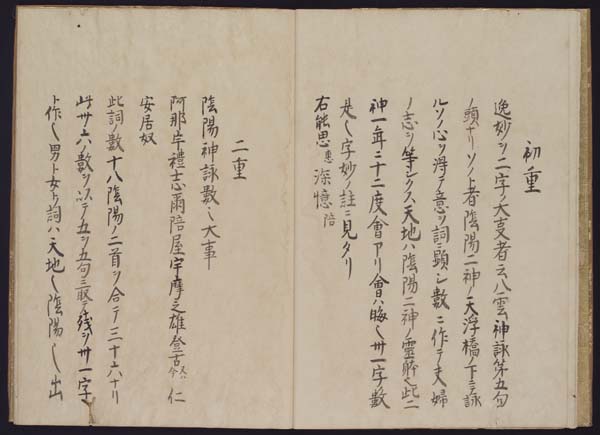 初重
逸妙ノ二字ノ大事者云八雲神詠第五句
ノ頭ナリソノ者陰陽二神ノ天浮橋ノ下ニ詠
ルソノ心ヲ得テ意ヲ詞ニ顕シ数ニ作テ夫婦
ノ志ヲ等シクス天地ハ陰陽二神ノ霊 此二
神一年二十二度會アリ會ハ晦 卅一字ノ数
是 字妙ノ註ニ見タリ
右能思惠深憶陪
二重
陰陽神詠数之大事
阿那 禮士心爾陪屋宇摩之雄登古 仁
安居奴
此詞ノ数十八陰陽ノ二首ヲ合テ三十六ナリ
此卅六ノ数ヲ以テ五ヲ五句ニ取テ残ヲ卅一字
ト作 男ト女ト詞ハ天地 陰陽 出